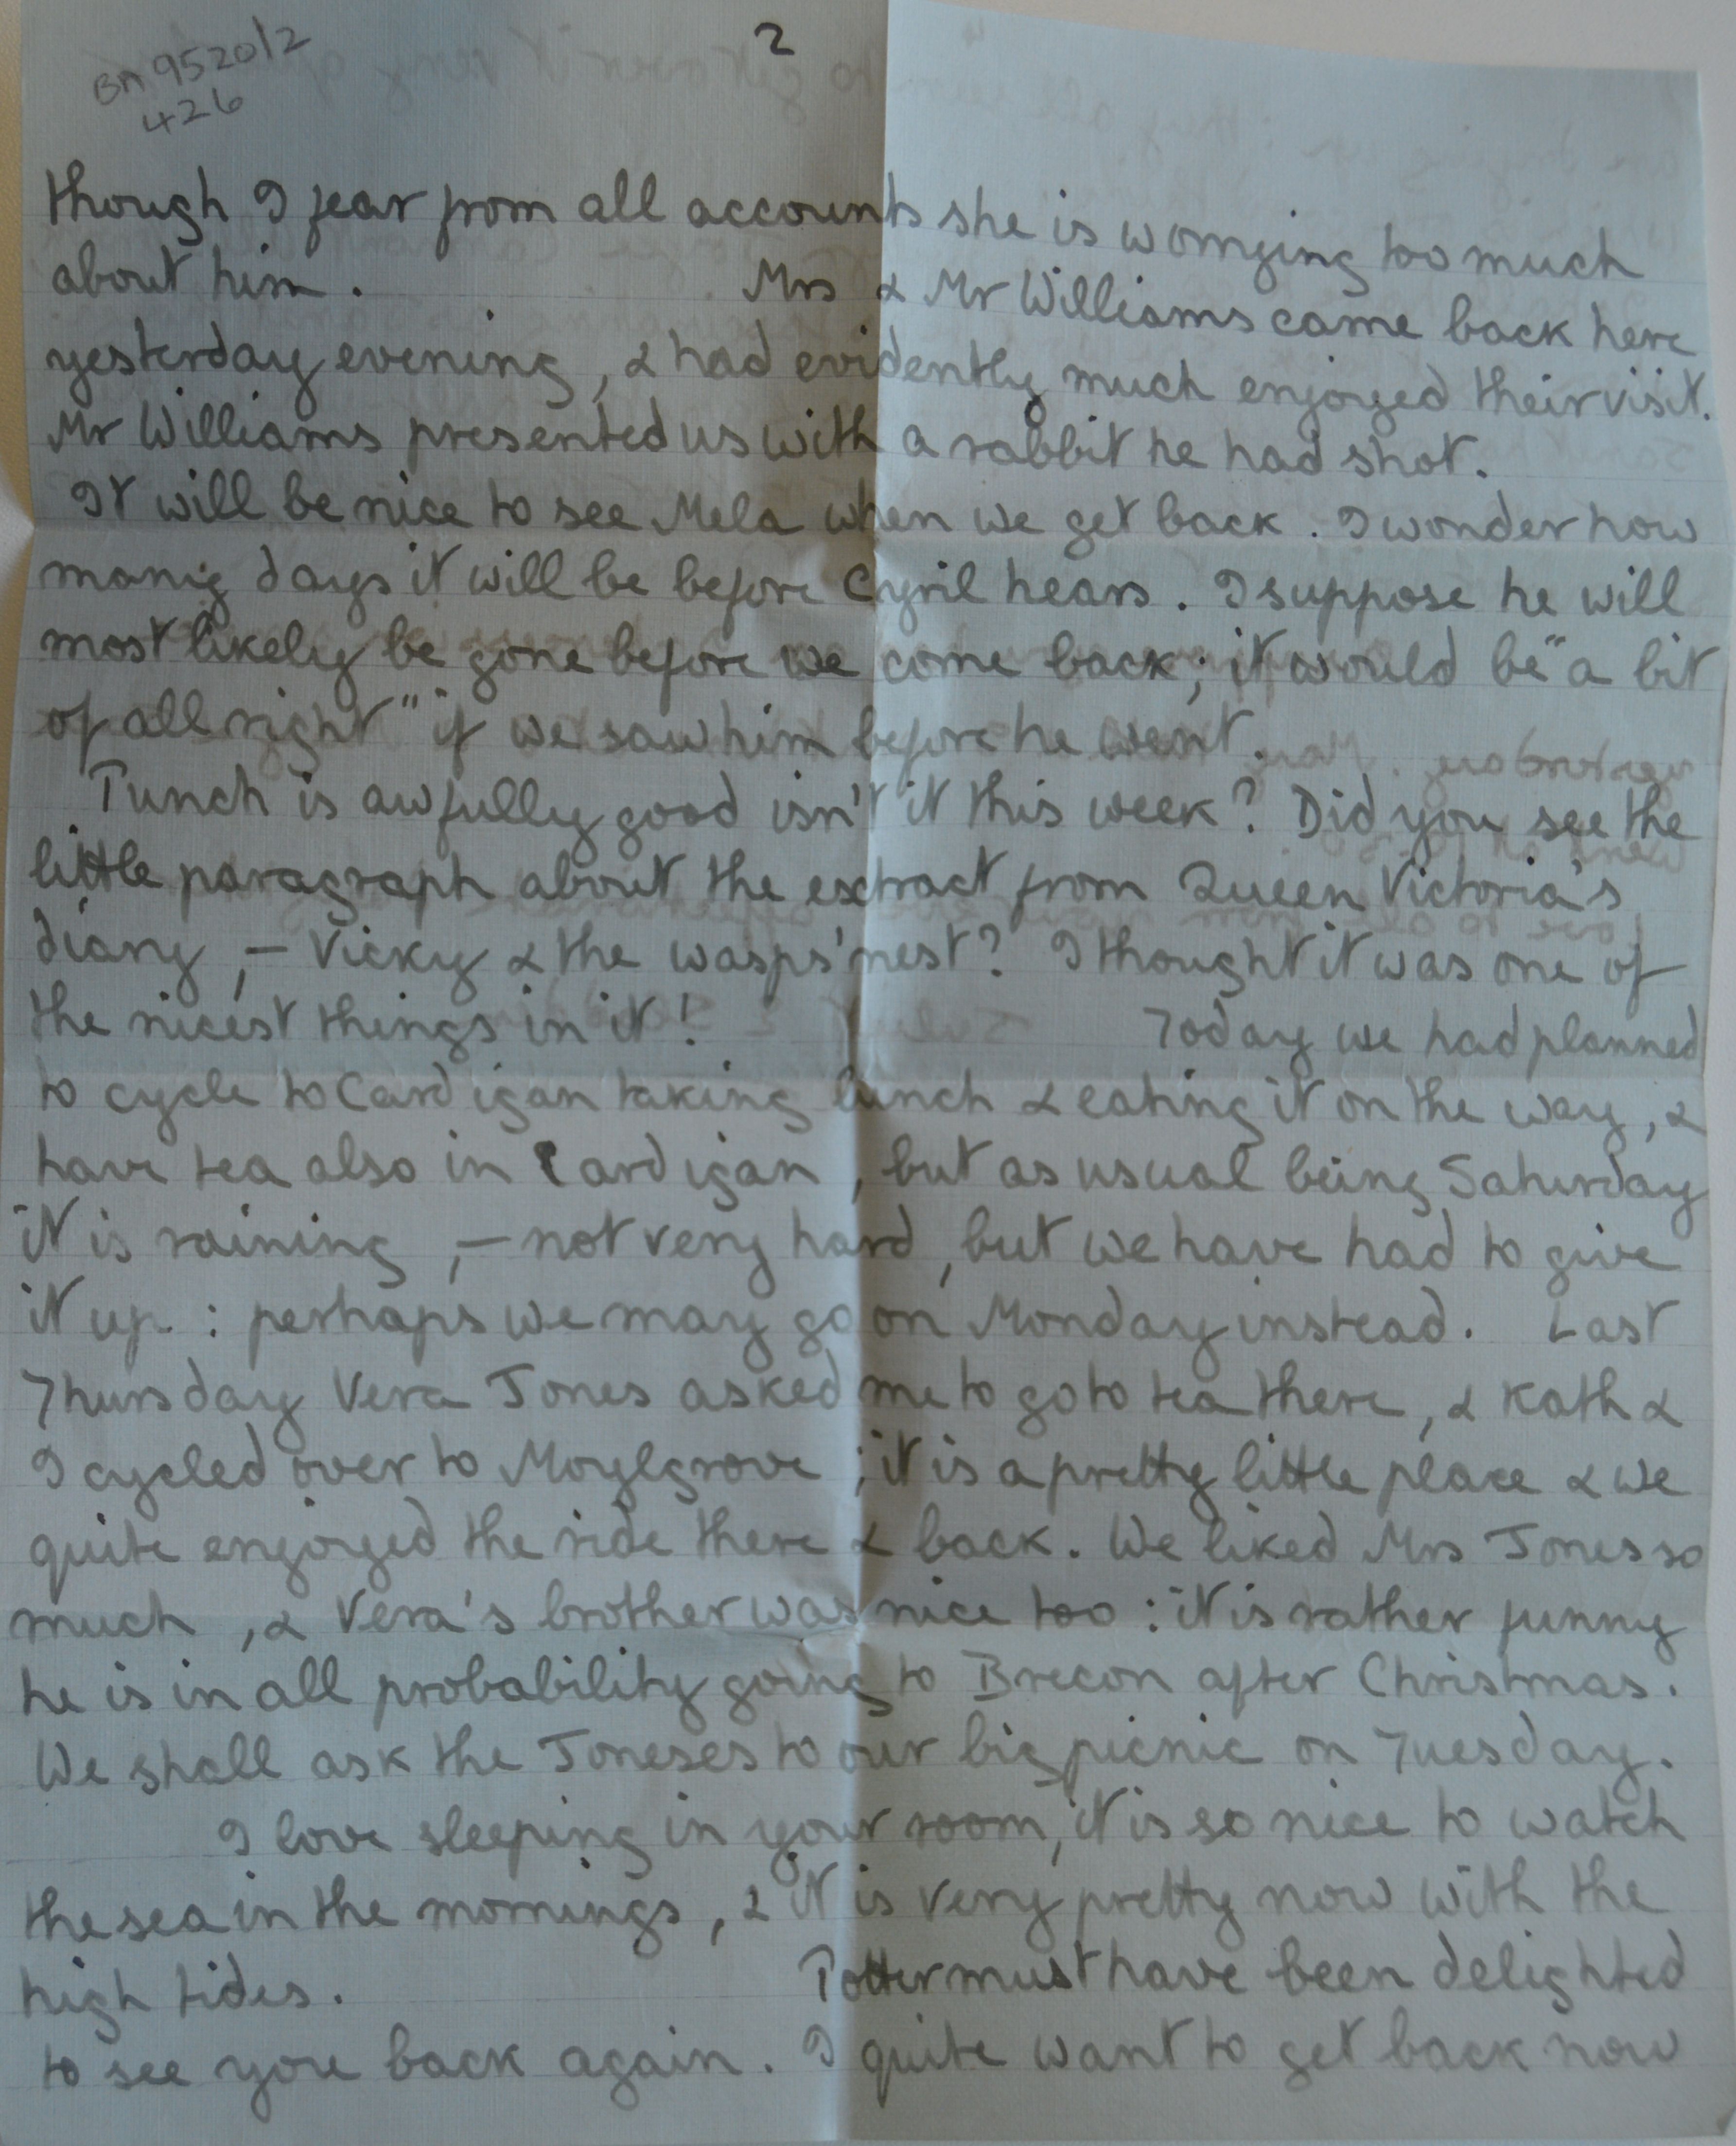 BA 9520/2
426
2
though I fear from all accounts she is worrying too much
about him. Mrs & Mr Williams came back here
yesterday evening, & had evidently much enjoyed their visit.
Mr Williams presented us with a rabbit he had shot.
It will be nice to see Mela when we get back. I wonder how
many days it will be before Cyril hears. I suppose he will
most likely be gone before we come back; it would be "a bit
of all right" if we saw him before he went.
Punch is awfully good isn't it this week? Did you see the
little paragraph about the extract from Queen Victoria's
diary, - Vicky & the wasps' nest? I thought it was one of
the nicest things in it! Today we had planned
to cycle to Cardigan taking lunch & eating it on the way, &
have tea also in Cardigan, but as usual being Saturday
it is raining, - not very hard, but we have had to give
it up: perhaps we may go on Monday instead. Last
Thursday Vera Jones asked me to go to tea there, & Kath &
I cycled over to Moylgrove; it is a pretty little place & we
quite enjoyed the ride there & back. We liked Mrs Jones so
much, & Vera's brother was nice too: it is rather funny
he is in all probability going to Brecon after Christmas.
We shall ask the Joneses to our big picnic on Tuesday.
I love sleeping in your room, it is so nice to watch
the sea in the mornings, & it is very pretty now with the
high tides. Potter must have been delighted
to see you back again. I quite want to get back now